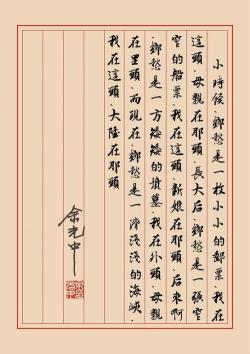 小時候.鄉愁是一枚小小的郵票.我在
這頭.母親在那頭.長大后.鄉愁是一張窄
窄的船票.我在這頭.新娘在那頭.后來啊
.鄉愁是一方矮矮的墳墓.我在外頭.母親
在里頭.而現在.鄉愁是一灣淺淺的海峽.
我在這頭.大陸在那頭
余光中